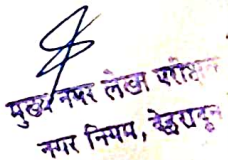 मुख्य नगर लेखा परीक्षक
नगर निगम, देहरादून